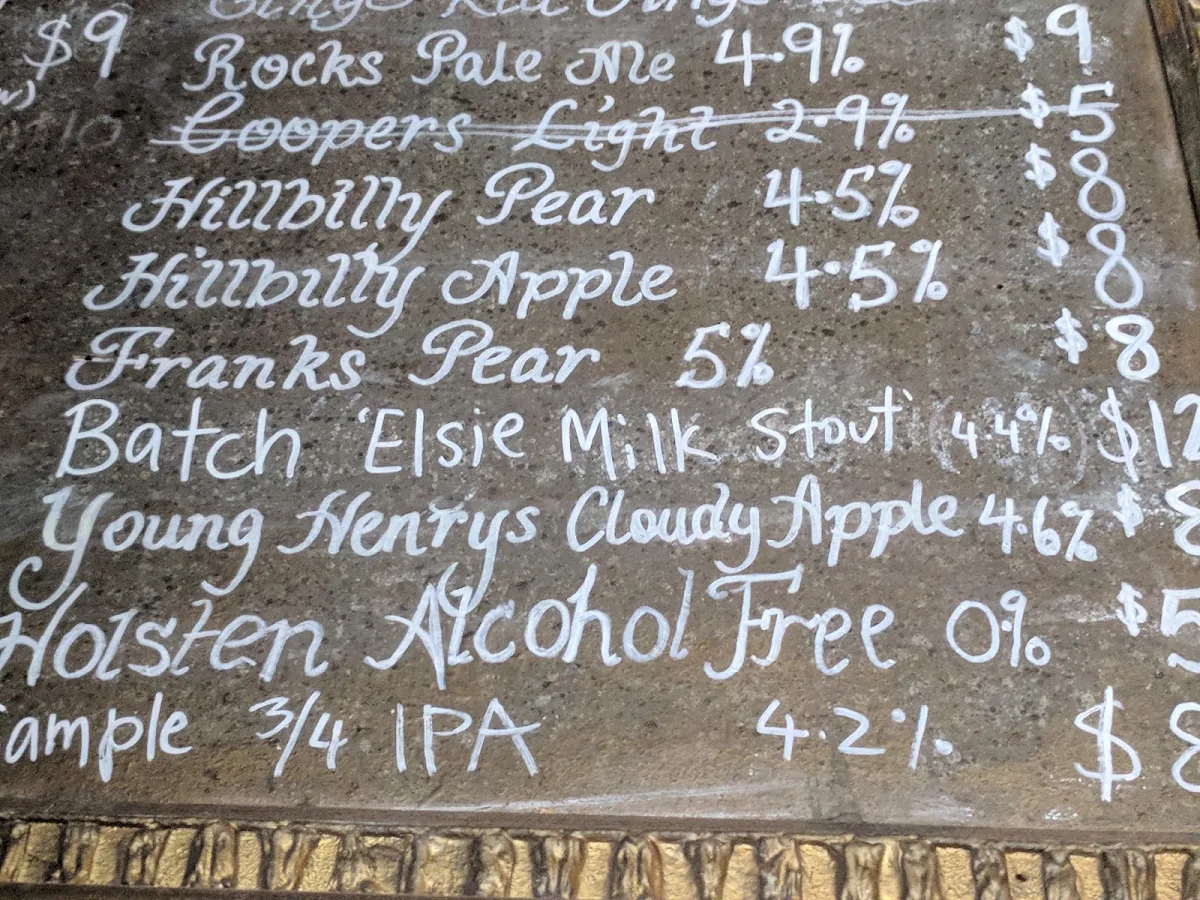 $9 Rocks Pale Ale 4.9% $9
Coopers Light 2.9% $5
Hillbilly Pear 4.5% $8
Hillbilly Apple 4.5% $8
Franks Pear 5% $8
Batch 'Elsie Milk Stout' (4.4%) $12
Young Henrys Cloudy Apple 4.6% $
Holsten Alcohol Free 0% $5
ample 3/4 IPA 4.2% $